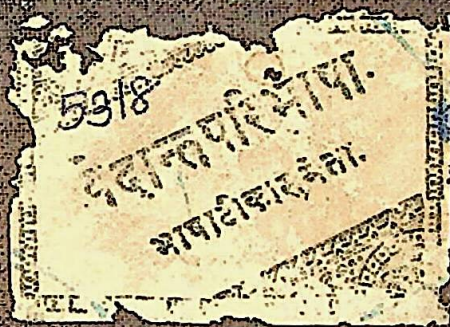 5318
वेदान्तपरिभाषा.
भाषाटीकासमेता.